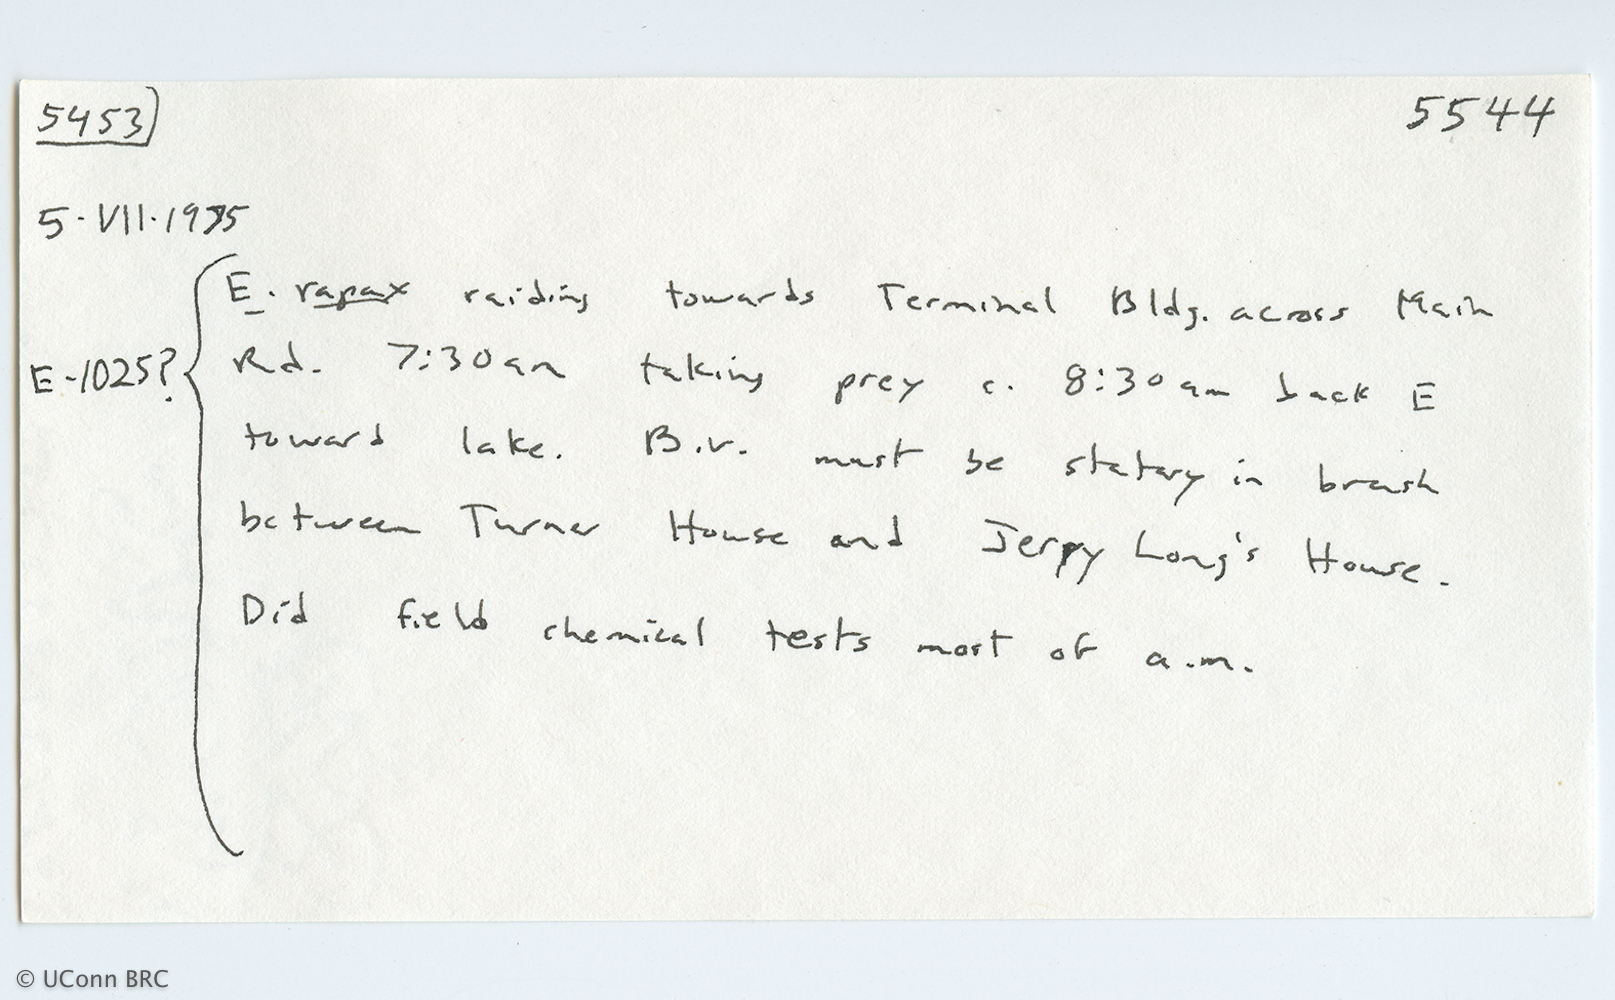 5453)
5544
5·VII·1975
E. rapax raiding towards Terminal Bldg. across Main
E-1025?
Rd. 7:30 am taking prey c. 8:30 am back E
toward lake. B.v. must be statary in brush
between Turner House and Jerry Long's House.
Did field chemical tests most of a.m.
© UConn BRC